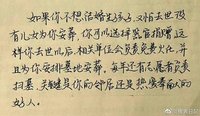 如果你不想结婚生孩子，又怕去世没
有儿女为你安葬，你可以选择器官捐赠，这
样你去世以后，相关单位会安排免费火化，并
且为你安排墓地安葬，每年还有志愿者负责
扫墓，关键是你的邻居还是热爱奉献的
好人。